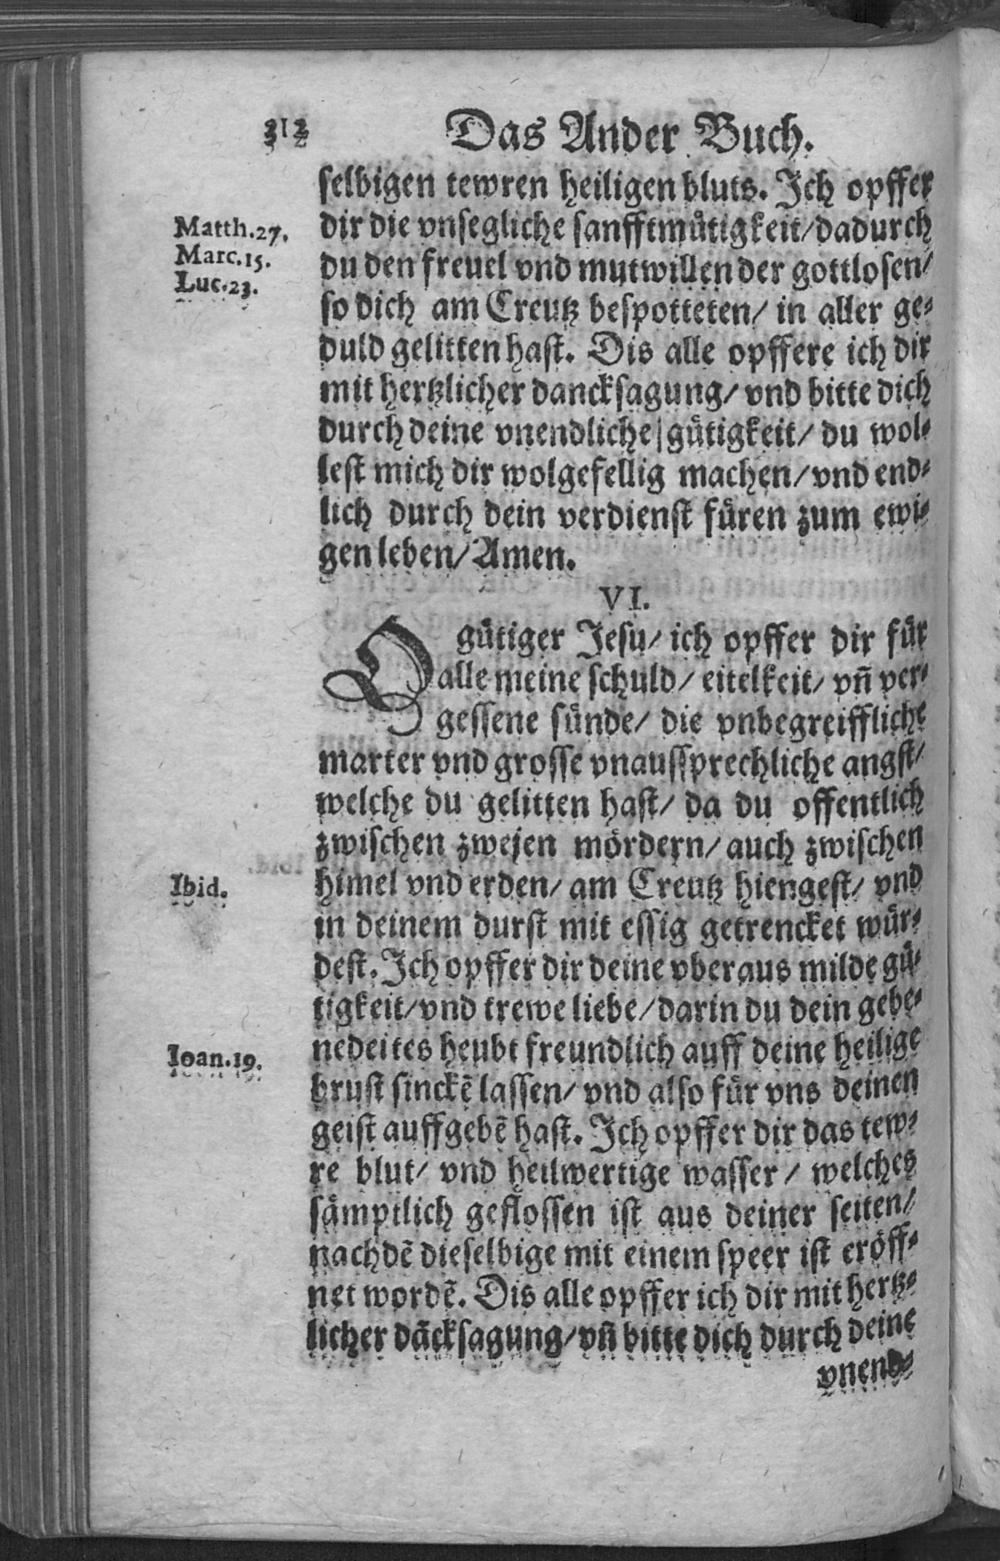 312 Das Ander Buch.
selbigen tewren heiligen bluts. Jch opffer
Matth.27. dir die vnsegliche sanfftmütigkeit/dadurch
Marc.15. du den freuel vnd mutwillen der gottlosen/
Luc.23. so dich am Creutz bespotteten/ in aller ge-
duld gelitten hast. Dis alle opffere ich dir
mit hertzlicher dancksagung/ vnd bitte dich
durch deine vnendliche gütigkeit/ du wol-
lest mich dir wolgefellig machen/ vnd end-
lich durch dein verdienst füren zum ewi-
gen leben/ Amen.
VI.
O gütiger Jesu/ ich opffer dir für
alle meine schuld/ eitelkeit/ vñ ver-
gessene sünde/ die vnbegreiffliche
marter vnd grosse vnaussprechliche angst/
welche du gelitten hast/ da du offentlich
zwischen zwejen mördern/ auch zwischen
Ibid. himel vnd erden/ am Creutz hiengest/ vnd
in deinem durst mit essig getrencket wür-
dest. Jch opffer dir deine vberaus milde gü-
tigkeit/ vnd trewe liebe/ darin du dein gebe-
Ioan.19. nedeites heubt freundlich auff deine heilige
brust sinckẽ lassen/ vnd also für vns deinen
geist auffgebẽ hast. Jch opffer dir das tew-
re blut/ vnd heilwertige wasser/ welches
sämptlich geflossen ist aus deiner seiten/
nachdẽ dieselbige mit einem speer ist eröff-
net wordẽ. Dis alle opffer ich dir mit hertz-
licher dãcksagung/ vñ bitte dich durch deine
vnend-